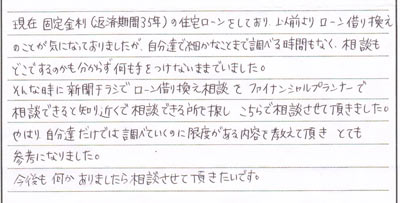 現在 固定金利(返済期間35年)の住宅ローンをしており、以前よりローン借り換え
のことが気になってありましたが、自分達で細かなことまで調べる時間もなく、相談も
どこでするのかも分からず何も手をつけないままでいました。
そんな時に新聞チラシでローン借り換え相談をファイナンシャルプランナーで
相談できると知り近くで相談できる所を探し、こちらで相談させて頂きました。
やはり自分達だけでは調べていくのに限度がある内容を教えて頂き とても
参考になりました。
今後も何かありましたら相談させて頂きたいです。